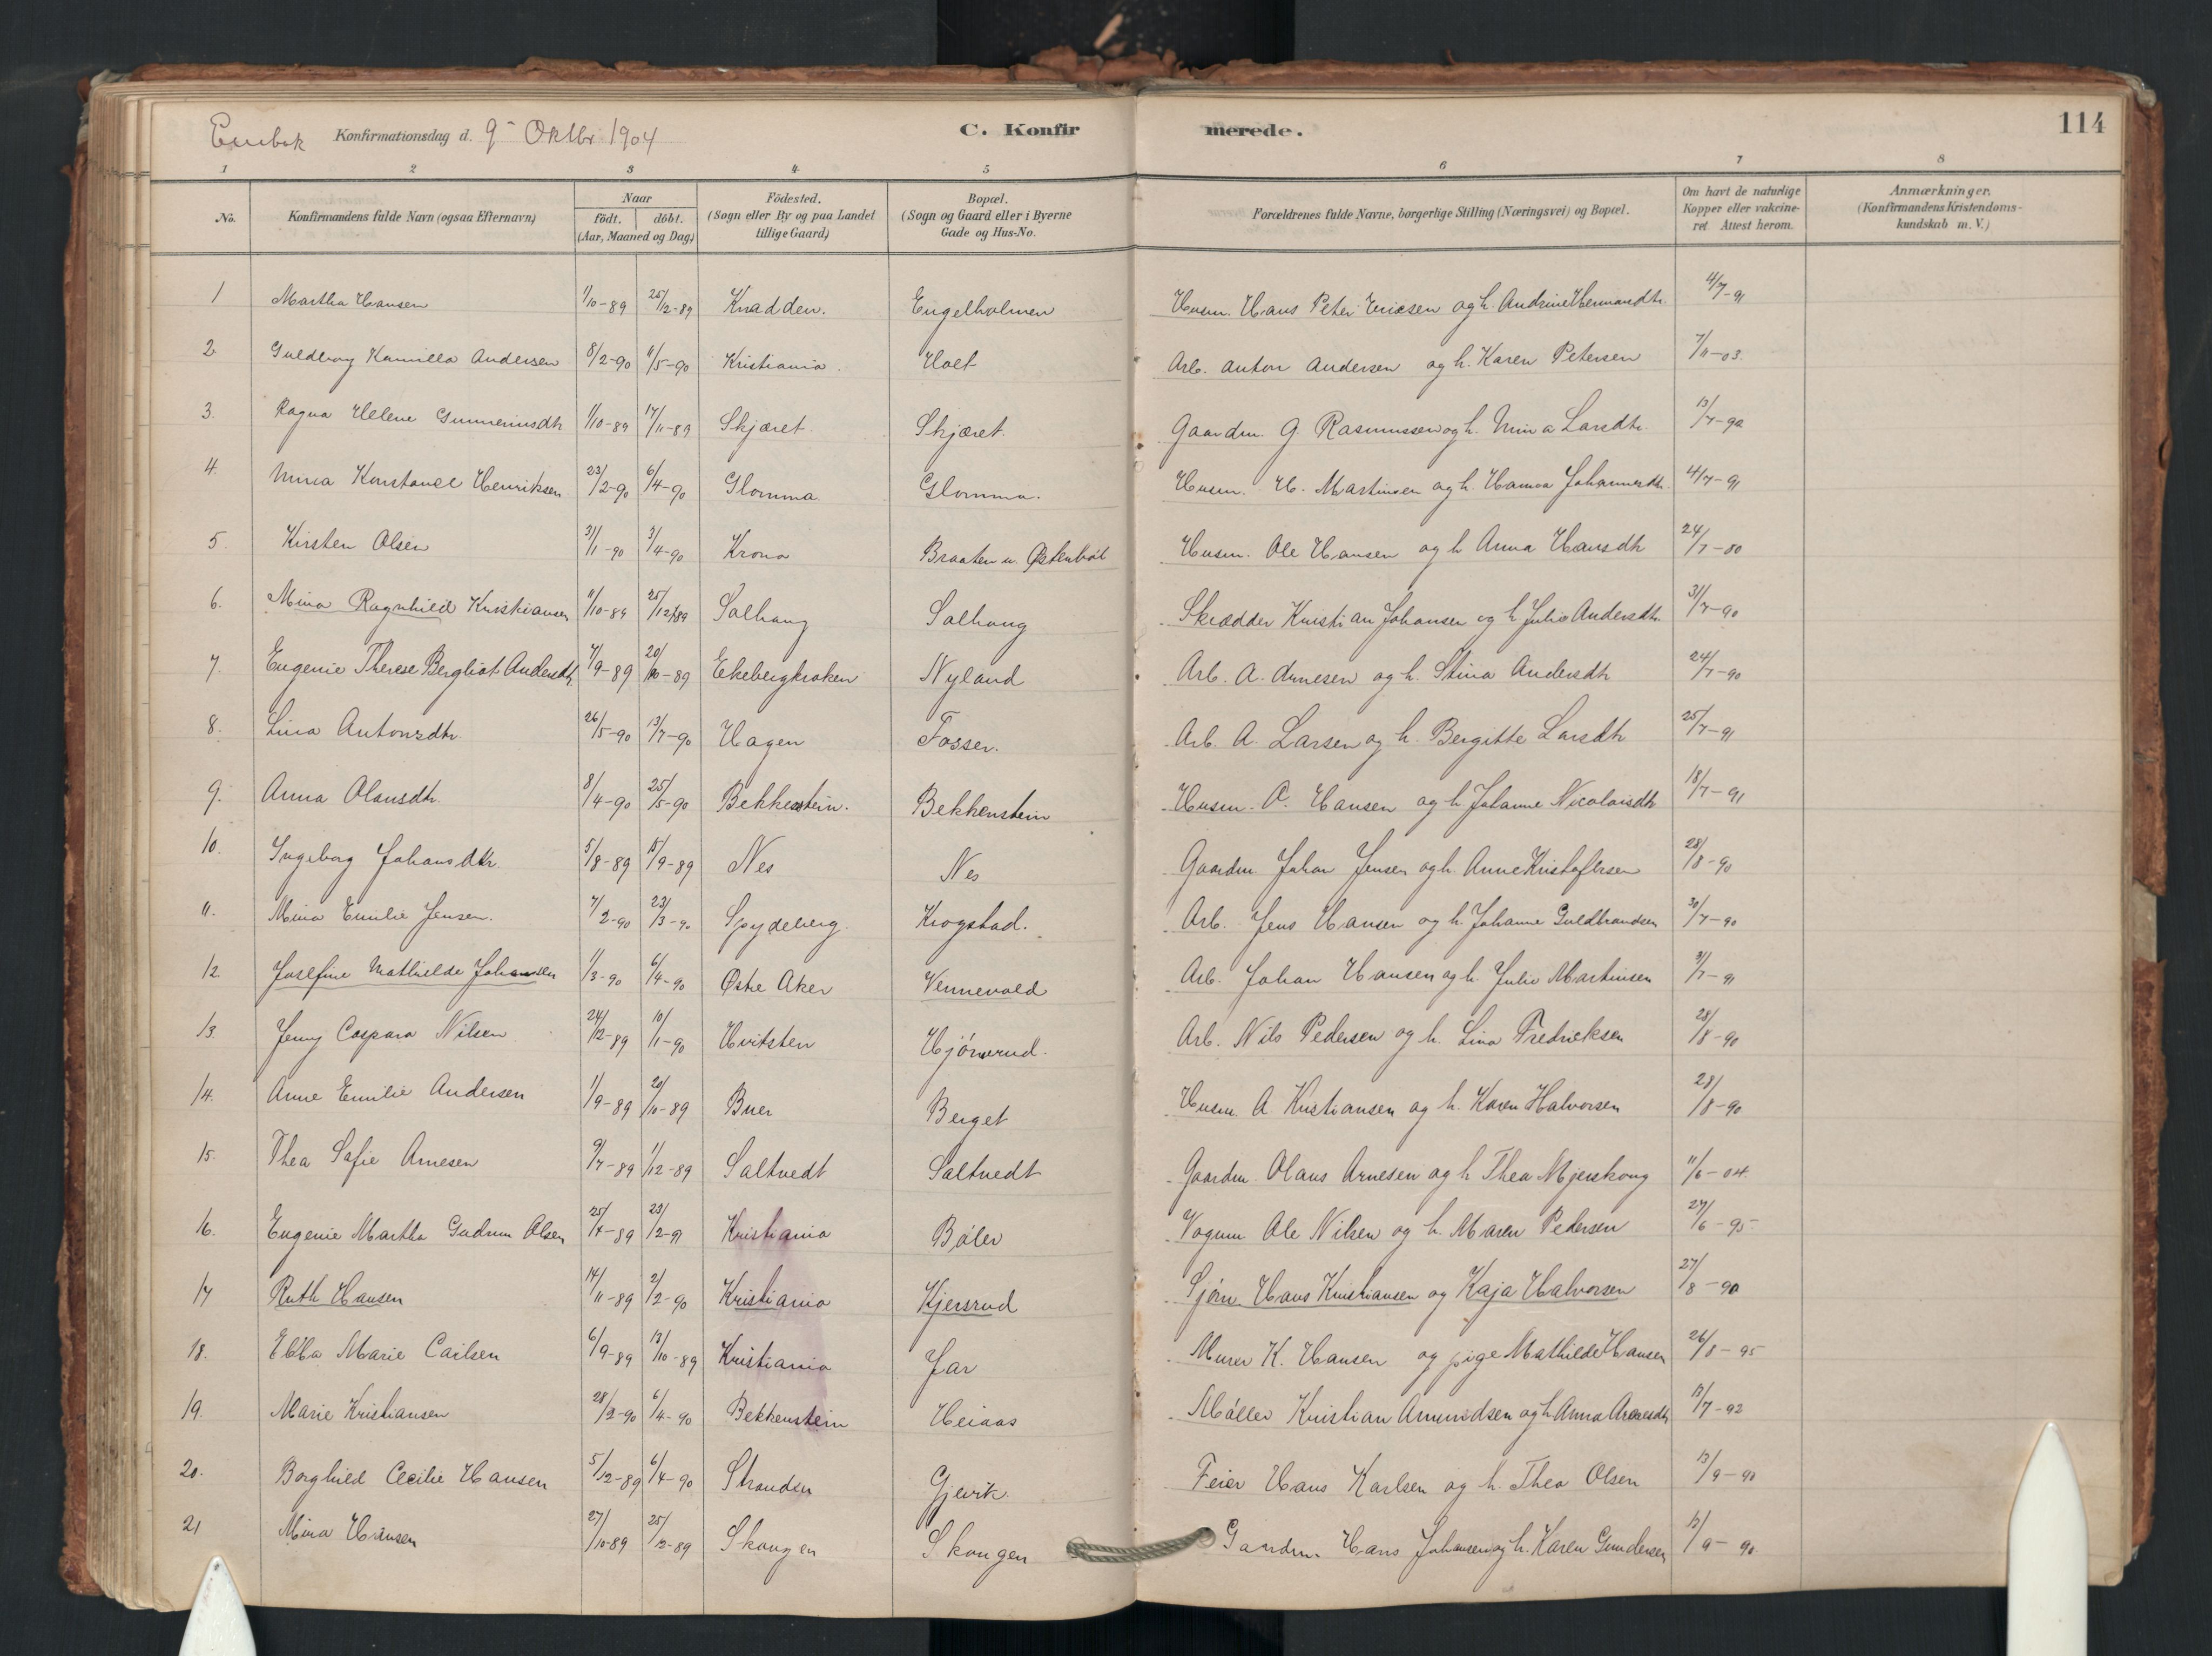 Enebak Konfirmationsdag d. 9 Oktbr 1904 C. Konfirmerede. 114
1 2 3 4 5 6 7 8
No. Konfirmandens fulde Navn (ogsaa Efternavn) Naar Födt. döbt. (Aar, Maaned og Dag) Födested. (Sogn eller By og paa Landet tillige Gaard) Bopæl. (Sogn og Gaard eller i Byerne Gade og Hus-No. Forældrenes fulde Navne, borgerlige Stilling (Næringsvei) og Bopæl. Om havt de naturlige Kopper eller vakcineret. Attest herom. Anmærkninger. (Konfirmandens Kristendomskundskab m. V.)
1 Martha Hansen 1/10-89 25/12-89 Knadden. Engelholmen Husm. Hans Peter Ericsen og h. Andrine Hermandtr. 4/7-91
2 Guldborg Kamilla Andersen 8/2-90 11/5-90 Kristiania. Holt Arb. Anton Andersen og h. Karen Petersen 7/11-03.
3. Ragna Helene Gunneriusdtr 1/10-89 17/11-89 Skjæret. Skjæret. Gaardm. G. Rasmussen og h. Mina Larsdtr. 13/7-92
4. Mina Konstance Henriksen 23/2-90 6/4-90 Glomma Glomma. Husm. H. Martinsen og h. Hanna Johannesdtr. 4/7-91
5. Kirsten Olsen 31/1-90 3/4-90 Krona Braaten u. Østenbøl Husm. Ole Hansen og h Anna Hansdtr 24/7-80
6. Mina Ragnhild Kristiansen 11/10-89 25/12-89 Solhaug Solhaug Skrædder Kristian Johansen og h Julie Andersdtr. 31/7-90
7. Eugenie Therese Bergliot Andersdtr 7/9-89 20/10-89 Ekebergkroken Nyland Arb. A. Arnesen og h. Stina Andersdtr 24/7-90
8. Lina Antonsdtr. 26/5-90 13/7-90 Hagen Fosser. Arb. A. Larsen og h. Bergitte Larsdtr 25/7-91
9. Anna Olausdtr. 8/4-90 25/5-90 Bekkenstein. Bekkenstein Husm. O. Hansen og h. Johanne Nicolaisdtr 18/7-91
10. Ingeborg Johansdtr. 5/8-89 15/9-89 Nes Nes Gaardm Johan Jensen og h. Anne Kristofersen 28/8-90
11. Mina Emilie Jensen. 7/2-90 23/3-90 Spydeberg Krogstad. Arb. Jens Hansen og h. Johanne Guldbrandsen 30/7-90
12 Josefine Mathilde Johansen 1/3-90 6/4-90 Østre Aker Vennevold Arb. Johan Hansen og h. Julie Martinsen 31/7-91
13. Jenny Caspara Nilsen 24/12-89 10/1-90 Hvitsten Hjörnerud. Arb. Nils Pedersen og h. Lina Fredricksen 28/8-90
14. Anne Emilie Andersen 1/9-89 20/10-89 Buer Berget Husm. A. Kristiansen og h. Karen Halvorsen 28/8-90
15. Thea Sofie Arnesen 9/7-89 1/12-89 Saltvedt Saltvedt Gaardm. Olaus Arnesen og h Thea Mjerskoug 11/6-04.
16. Eugenie Martha Gudrun Olsen 25/4-89 23/2-91 Kristiania Böler Vognm Ole Nilsen og h. Maren Pedersen 27/6-95
17 Ruth Hansen 14/11-89 2/2-90 Kristiania Kjersrud Sjöm. Hans Kristiansen og Kaja Halvorsen 27/8-90
18. Ebba Marie Carlsen 6/9-89 13/10-89 Kristiania Jar Murer K. Hansen og pige Mathilde Hansen 26/8-95
19. Marie Kristiansen 28/2-90 6/4-90 Bekkenstein Heiaas Möller Kristian Amundsen og h Anna 17/7-92
20. Borghild Cecilie Hansen 5/12-89 6/4-90 Stranden Gjevik. Feier Hans Karlsen og h. Thea Olsen 13/9-90
21 Mina Hansen 27/10-89 25/12-89 Skougen Skougen Gaardm. Hans Johansen og h. Karen Gundersen 12/9-90.